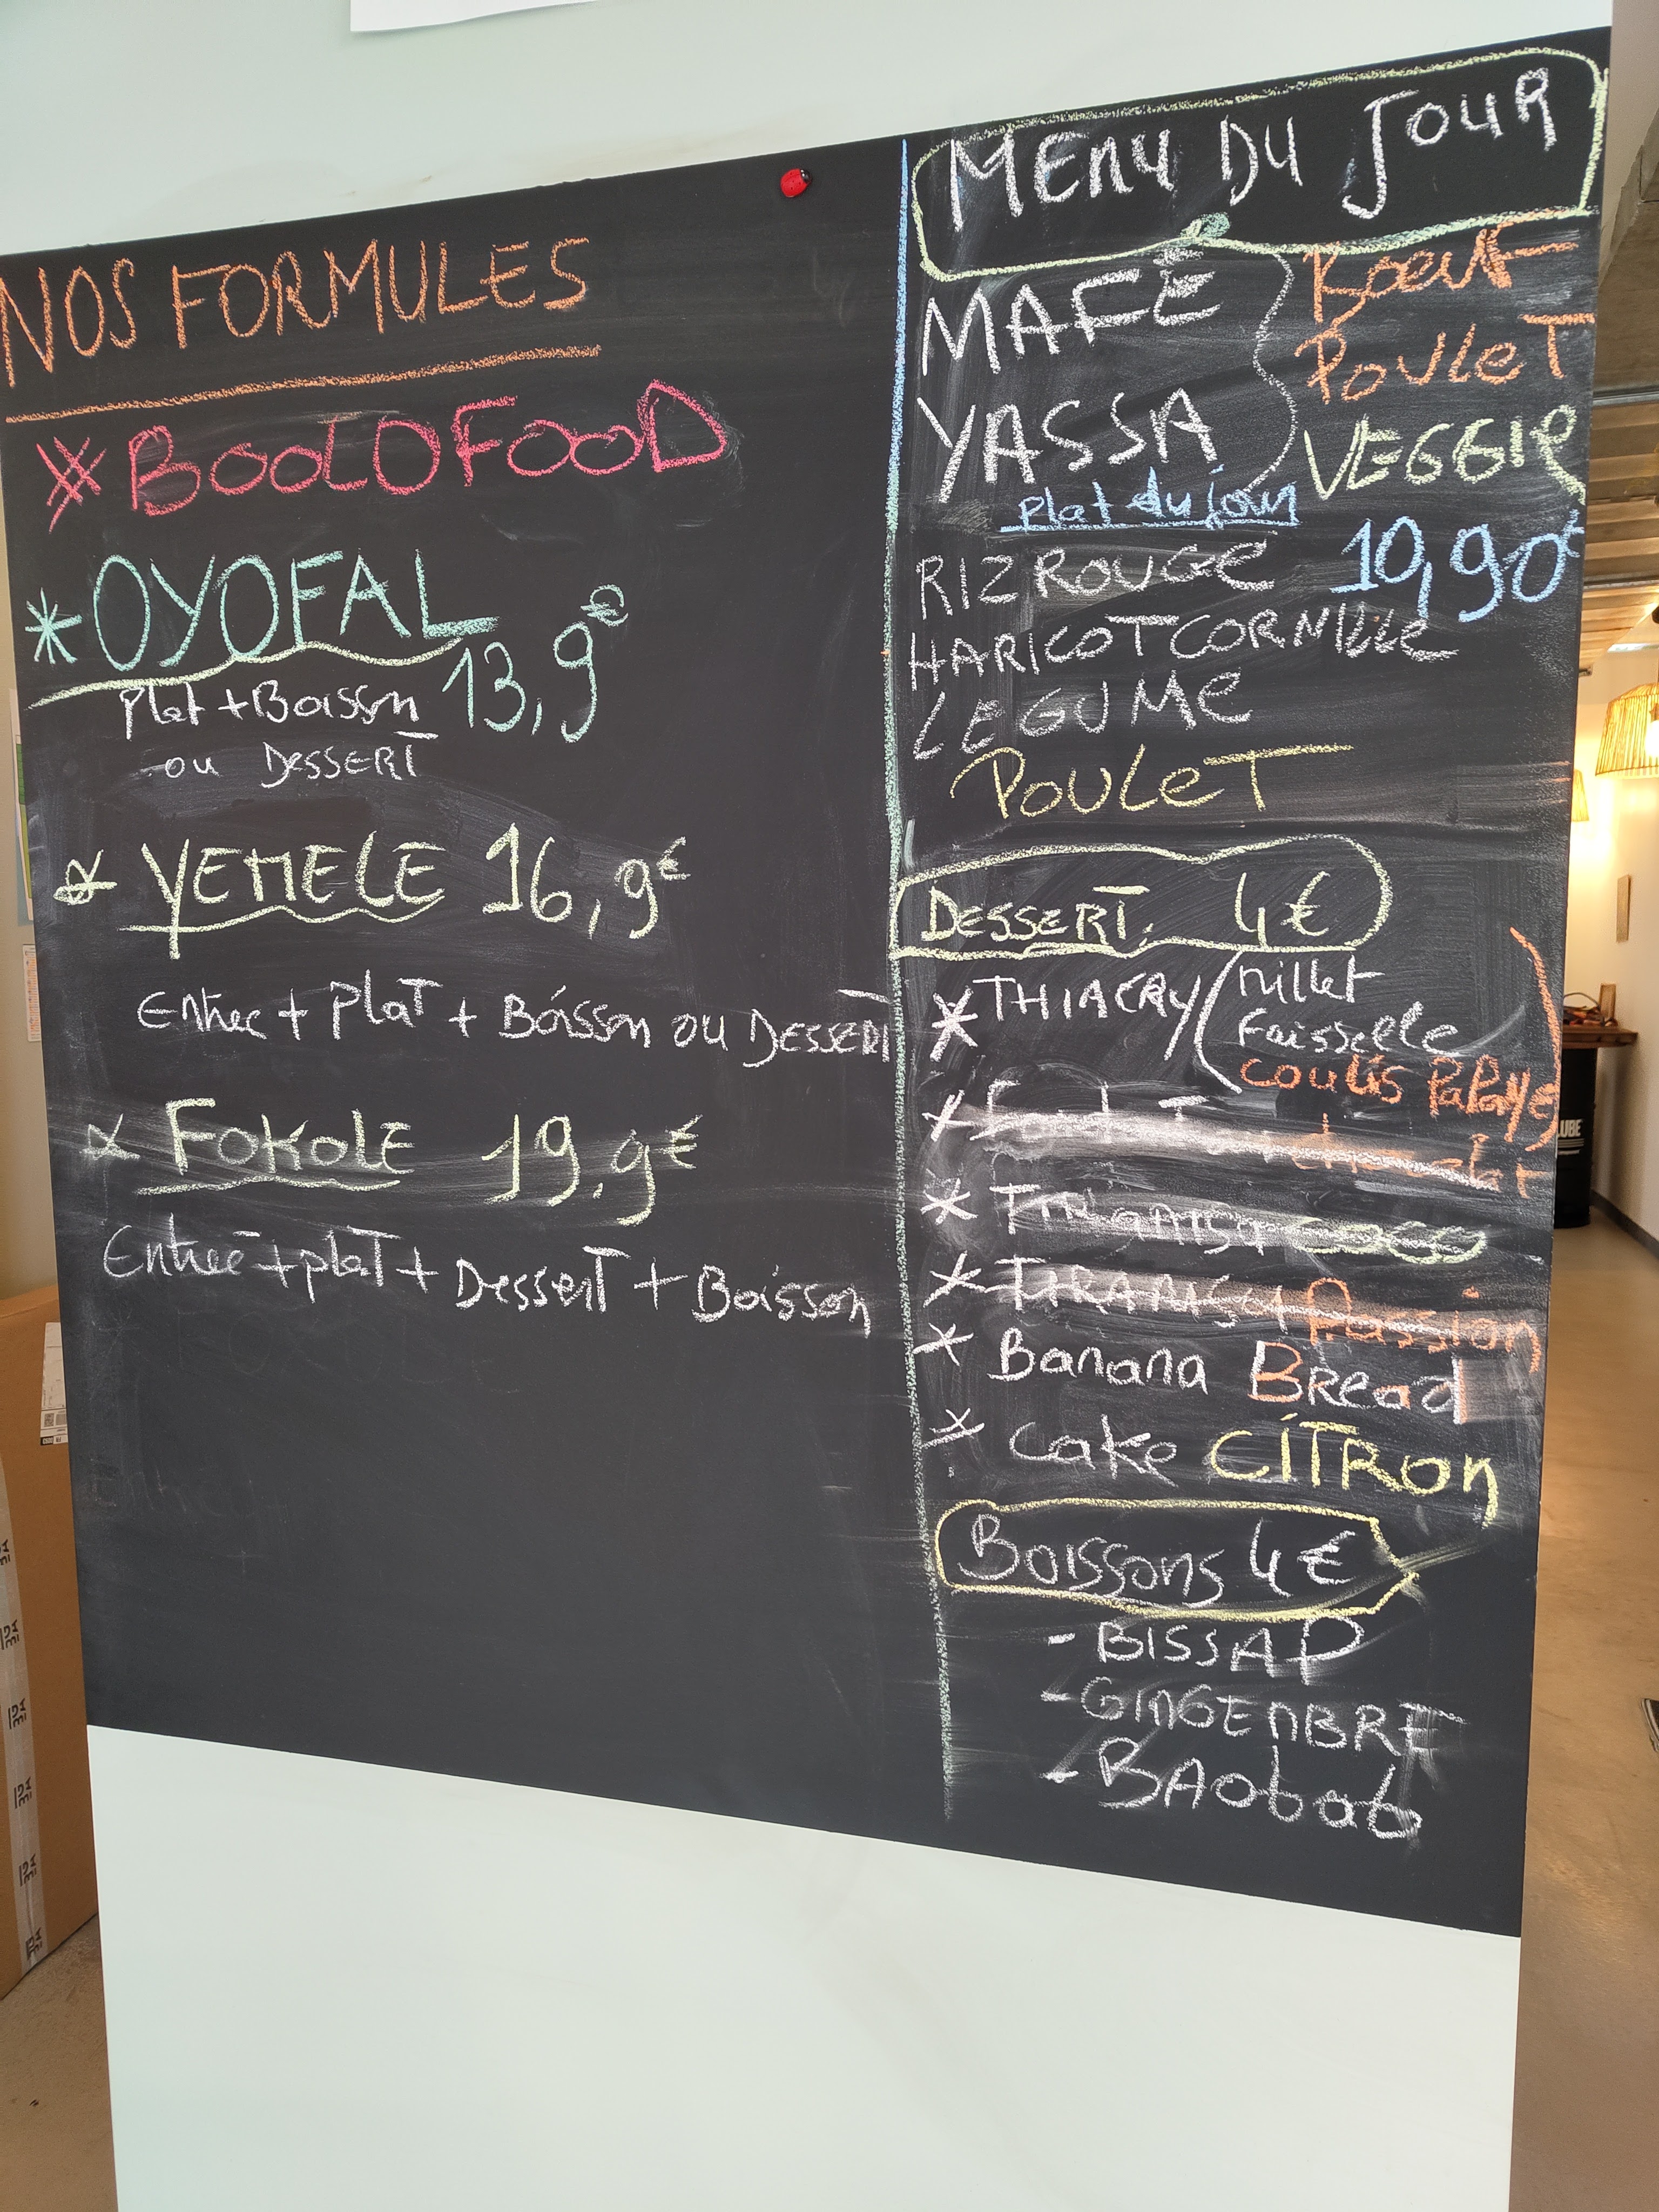 NOS FORMULES
* BOOLOFOOD
* OYOFAL
13,9€
Plat + Boisson
ou DESSERT
* YEMELE 16,9€
Entrée + Plat + Boisson ou DESSERT
* FOKOLE 19,9€
Entrée + plat + Dessert + Boisson
MENU DU JOUR
MAFÉ
YASSA
Boeuf
POULET
VEGGIE
Plat du jour
10,90€
RIZ ROUGE
HARICOT CORNILLE
LEGUME
POULET
DESSERT. 4€
* THIACRY
millet
Faisselle
coulis PAPAYE
* TIRAMISU Passion
* Banana Bread
* cake CITRON
Boissons 4€
- BISSAP
- GINGENBRE
- BAObab